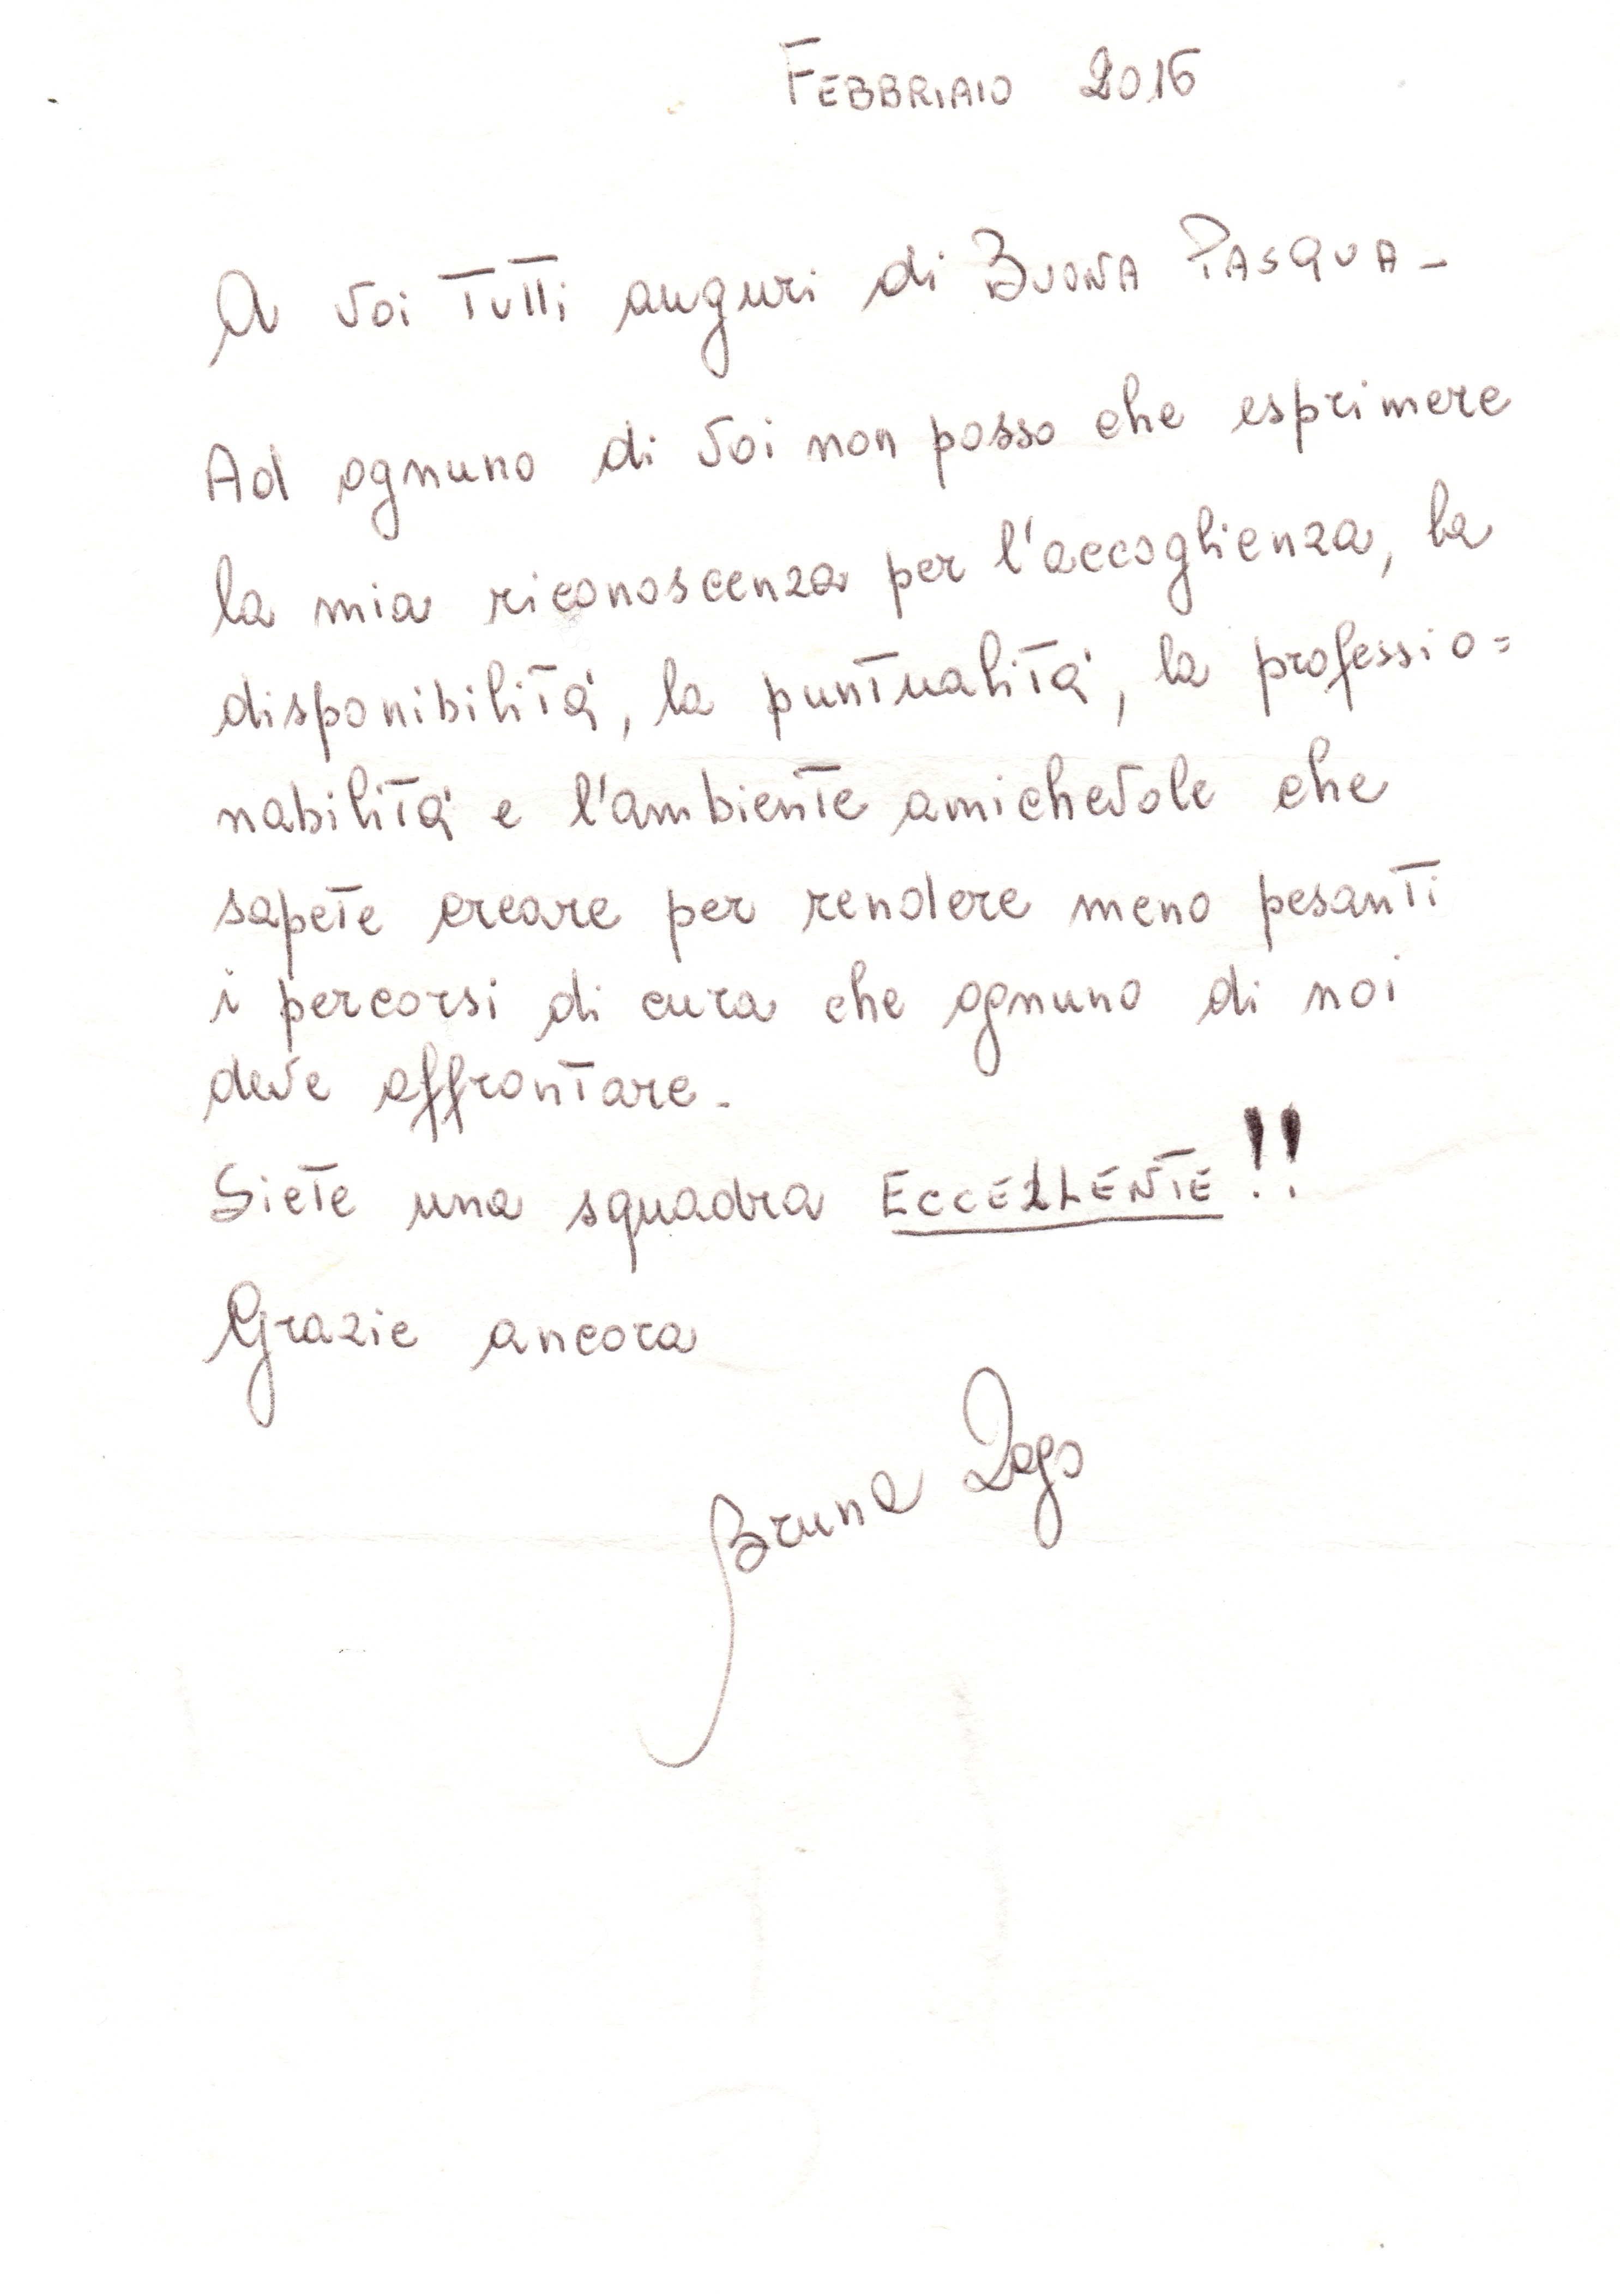 FEBBRIAIO 2016
A voi tutti auguri di BUONA PASQUA -
Ad ognuno di voi non posso che esprimere
la mia riconoscenza per l'accoglienza, la
disponibilità, la puntualità, la professio=
nabilità e l'ambiente amichevole che
sapete creare per rendere meno pesanti
i percorsi di cura che ognuno di noi
deve affrontare.
Siete una squadra ECCELLENTE!!
Grazie ancora
Bruna Zago